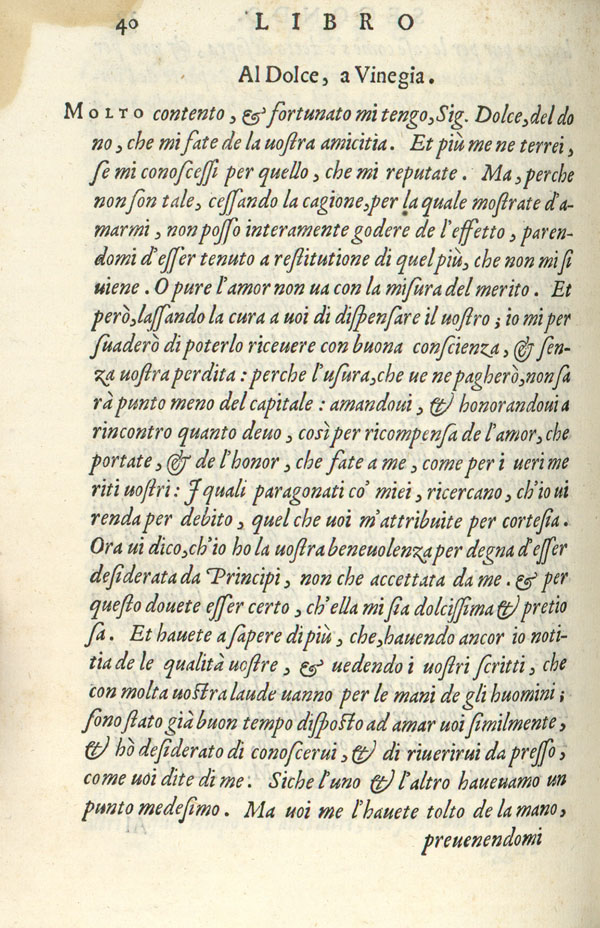 40 LIBRO
Al Dolce, a Vinegia.
MOLTO contento, & fortunato mi tengo, Sig. Dolce, del do
no, che mi fate de la uostra amicitia. Et più me ne terrei,
se mi conoscessi per quello, che mi reputate. Ma, perche
non son tale, cessando la cagione, per la quale mostrate d'a-
marmi, non posso interamente godere de l'effetto, paren-
domi d'esser tenuto a restitutione di quel più, che non mi si
uiene. O pure l'amor non ua con la misura del merito. Et
però, lassando la cura a uoi di dispensare il uostro; io mi per
suaderò di poterlo riceuere con buona conscienza, & sen-
za uostra perdita: perche l'usura, che ue ne pagherò, non sa
rà punto meno del capitale: amandoui, & honorandoui a
rincontro quanto deuo, così per ricompensa de l'amor, che
portate, & de l'honor, che fate a me, come per i ueri me
riti uostri: I quali paragonati co' miei, ricercano, ch'io ui
renda per debito, quel che uoi m'attribuite per cortesia.
Ora ui dico, ch'io ho la uostra beneuolenza per degna d'esser
desiderata da Principi, non che accettata da me. & per
questo douete esser certo, ch'ella mi sia dolcissima & pretio
sa. Et hauete a sapere di più, che, hauendo ancor io noti-
tia de le qualità uostre, & uedendo i uostri scritti, che
con molta uostra laude uanno per le mani de gli huomini;
sono stato già buon tempo disposto ad amar uoi similmente,
& hò desiderato di conoscerui, & di riuerirui da presso,
come uoi dite di me. Siche l'uno & l'altro haueuamo un
punto medesimo. Ma uoi me l'hauete tolto de la mano,
preuenendomi